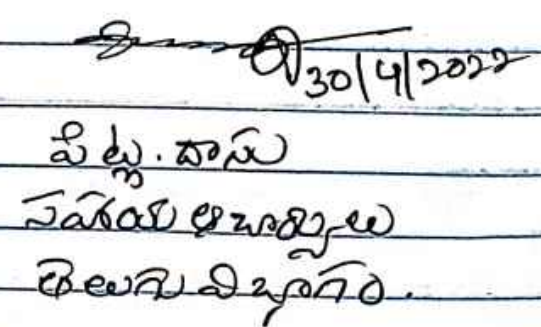 30/4/2022
పేట్ల. దాసు
సహాయ ఆచార్యులు
తెలుగు విభాగం.